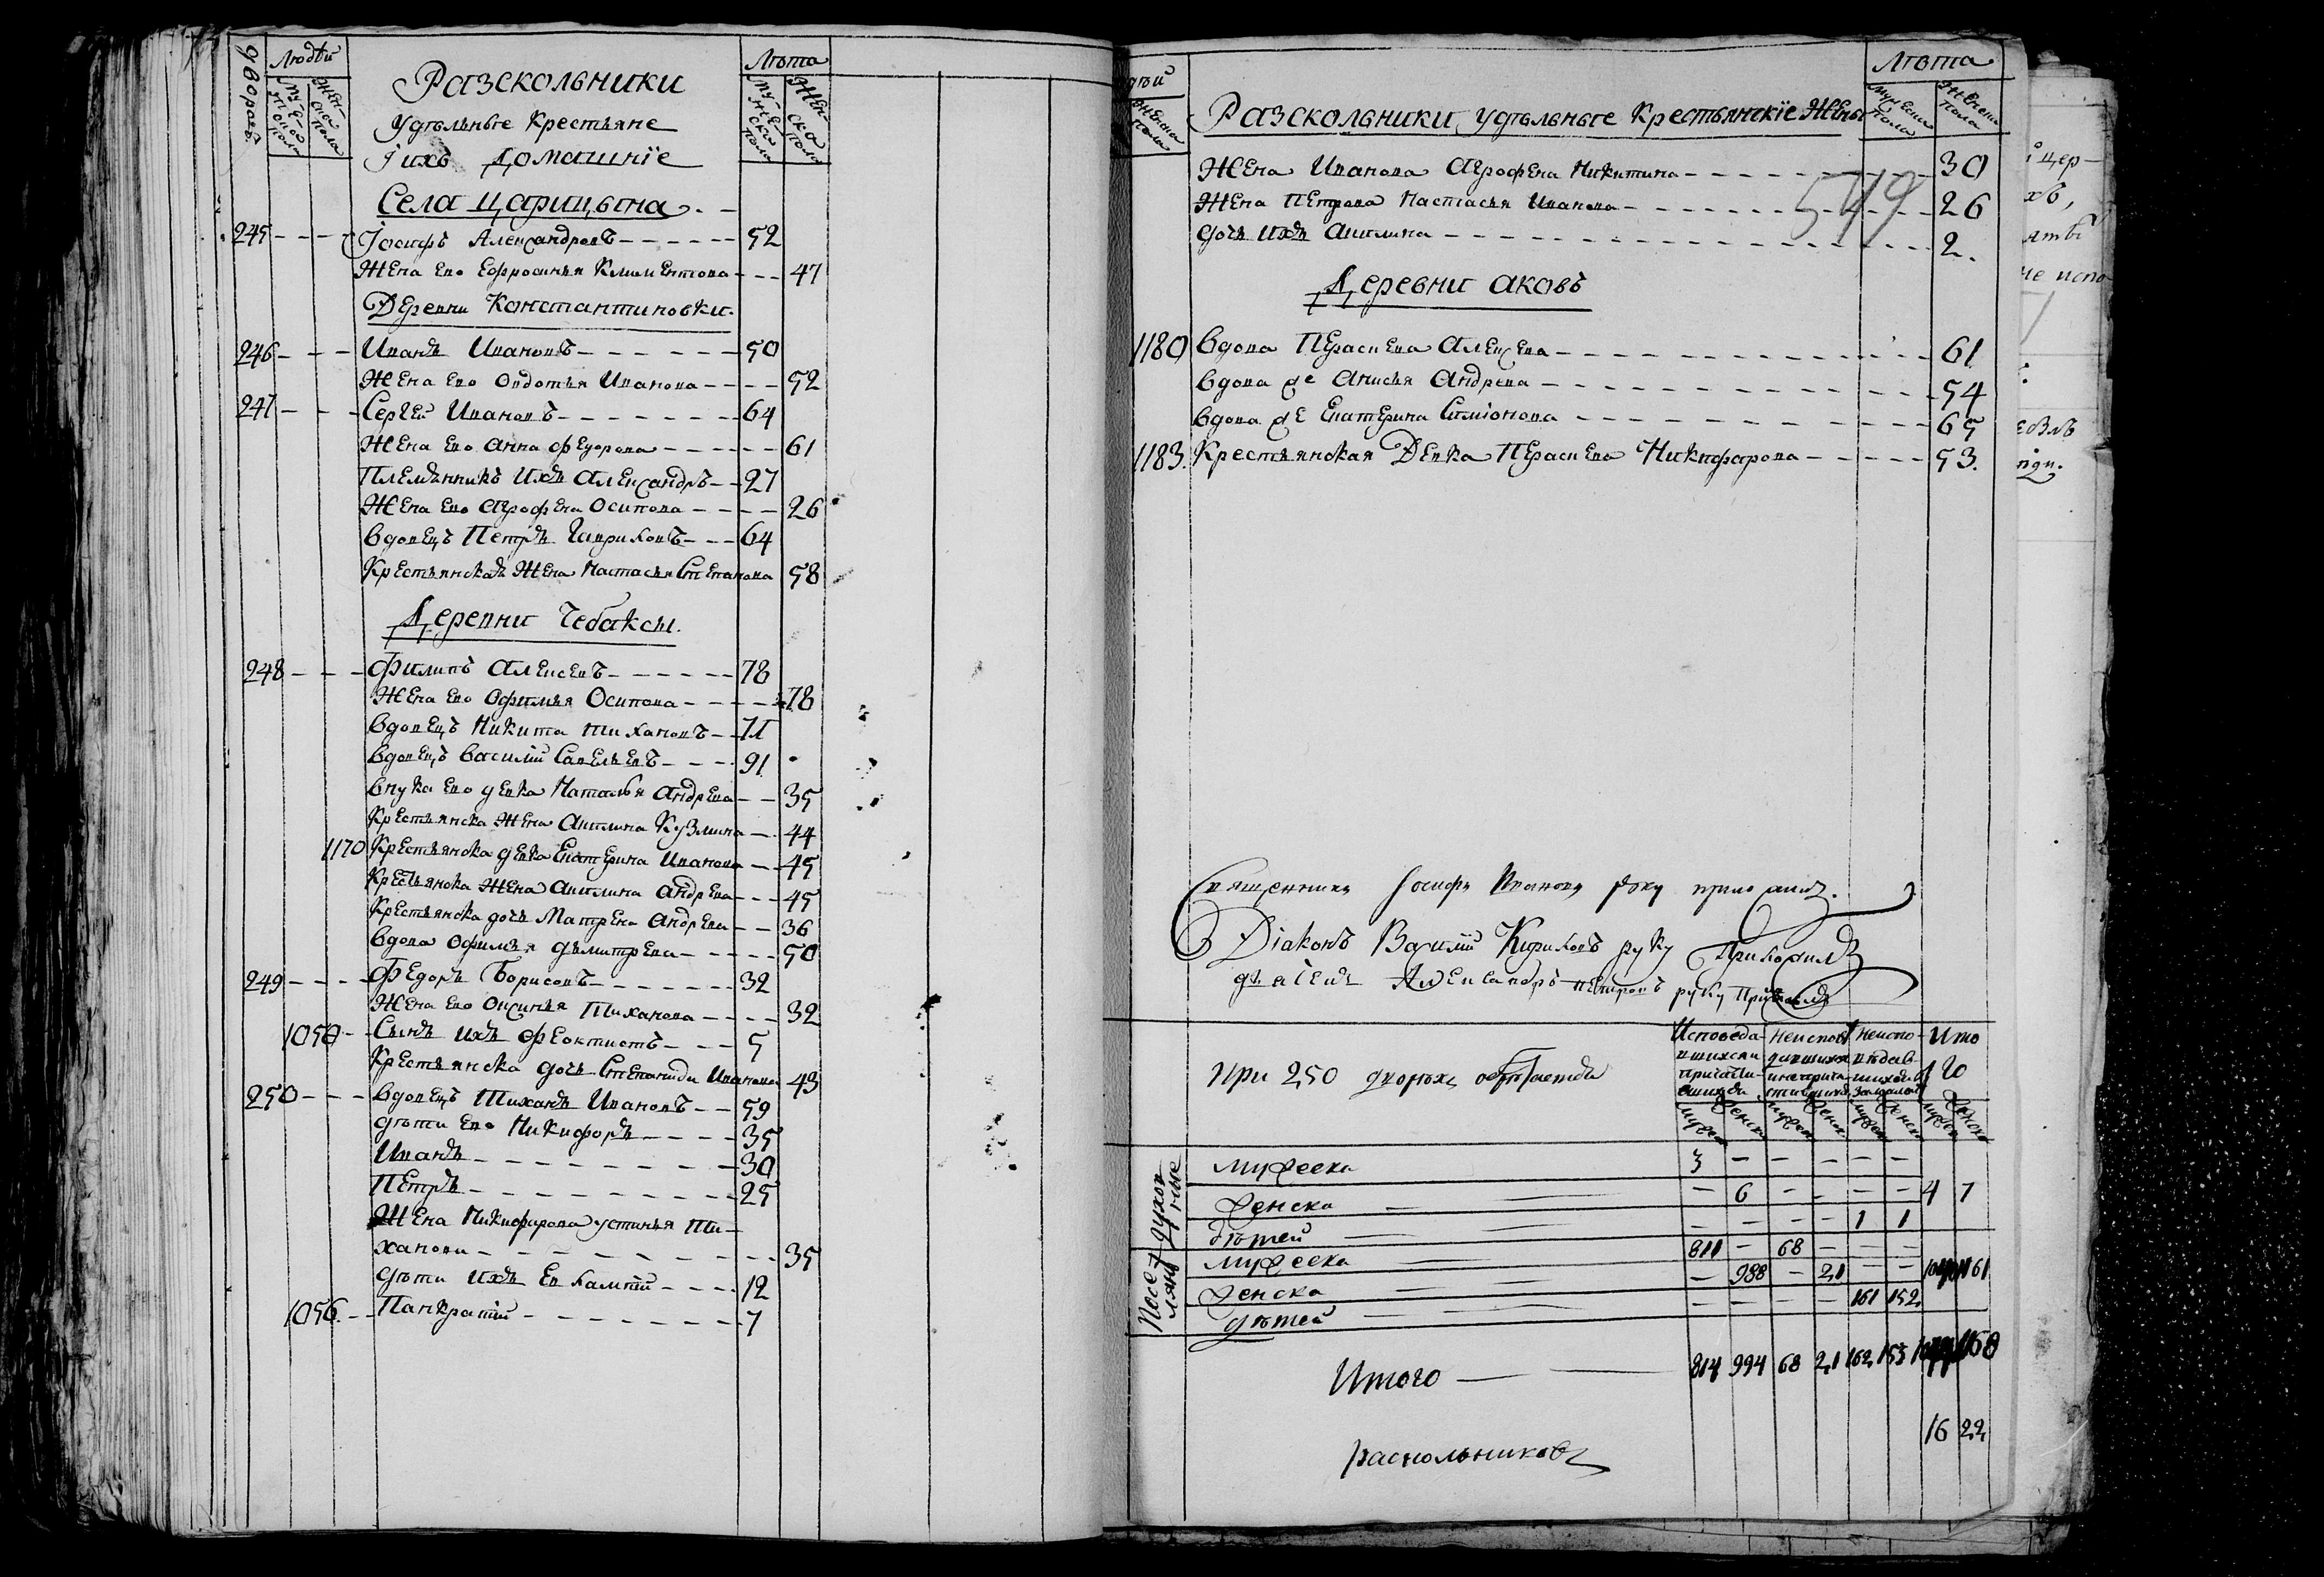 дворовъ
Людѣй
Мужеска пола
Женска пола
Разскольники
удѣльные крестьяне
јихъ домашнїе
Лѣта
Мужеска пола
Женска пола
Села Царицына
245 Іосифъ Александровъ 52
Жена ево Ефросинья Климентова 47
Деревни Константиновки
246 Иванъ Ивановъ 50
Жена ево Овдотья Иванова 52
247 Сергей Ивановъ 64
Жена ево Анна Федорова 61
Племянникъ ихъ Александръ 27
Жена ево Агрофена Осипова 26
Вдовецъ Петръ Гавриловъ 64
Крестьянская Жена Настасья Степанова 58
Деревни Чебаксы.
248 Филипъ Алексеевъ 78
Жена ево Офимья Осипова 78
Вдовецъ Никита Тихановъ 71
Вдовецъ Василий Савельевъ 91
Внука ево девка Наталья Андрева 35
Крестьянска Жена Акилина Кузмина 44
1170 Крестьянска девка Екатерина Иванова 45
Крестьянска Жена Акилина Андрева 45
Крестьянска дочь Матрена Андрева 36
Вдова Офимья Дьмитрева 50
249 Федоръ Борисовъ 32
Жена ево Оксинья Тиханова 32
1050 Сынъ ихъ Феоктистъ 5
Крестьянска дочь Степанида Иванова 43
250 Вдовецъ Тиханъ Ивановъ 59
дѣти ево Никифоръ 35
Иванъ 30
Петръ 25
Жена Никифорова устинья Ти-
ханова 35
дѣти ихъ Евлампий 12
1056 Панкратий 7
дѣй
Женска пола
Разскольники удѣльные крестьянскїе Жены
Лѣта
Мужеска пола
Женска пола
Жена Иванова Агрофена Никитина 30
549
Жена Петрова Настасья Иванова 26
дочь ихъ Акилина 2.
Деревни аковъ
1180 Вдова Пераскева Алексева 61
Вдова де Анисья Андрева 54
Вдова де Екатерина Симіонова 65
1183. Крестьянская Девка Пераскева Никифарова 53.
Священникъ Іосифъ Ивановъ руку приложилъ.
Діаконъ Василий Кириловъ руку приложилъ
дьячекъ Александръ Петровъ руку приложилъ
При 250 дворохъ обретается
Мужеска 3 — — — — —
Женска — 6 — — — — 4 7
дѣтей — — — — 1 1
Поселянъ
Мужеска 811 — 68 — — —
Женска — 988 — 21 — — 1161
дѣтей — — — — 161 152
Итого 814 994 68 21 162 153
16 22
раскольниковъ